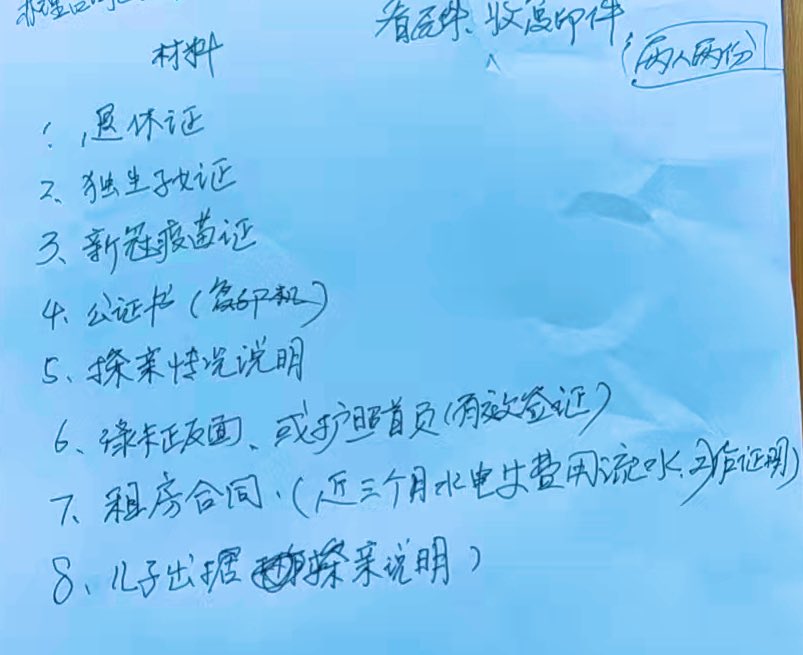 看原件、收复印件
(两人两份)
材料
1、退休证
2、独生子女证
3、新冠疫苗证
4、公证书(复印机)
5、探亲情况说明
6、绿卡正反面、或护照首页(有效签证)
7、租房合同、(近三个月水电费用流水、工作证明)
8、儿子出据探亲说明)